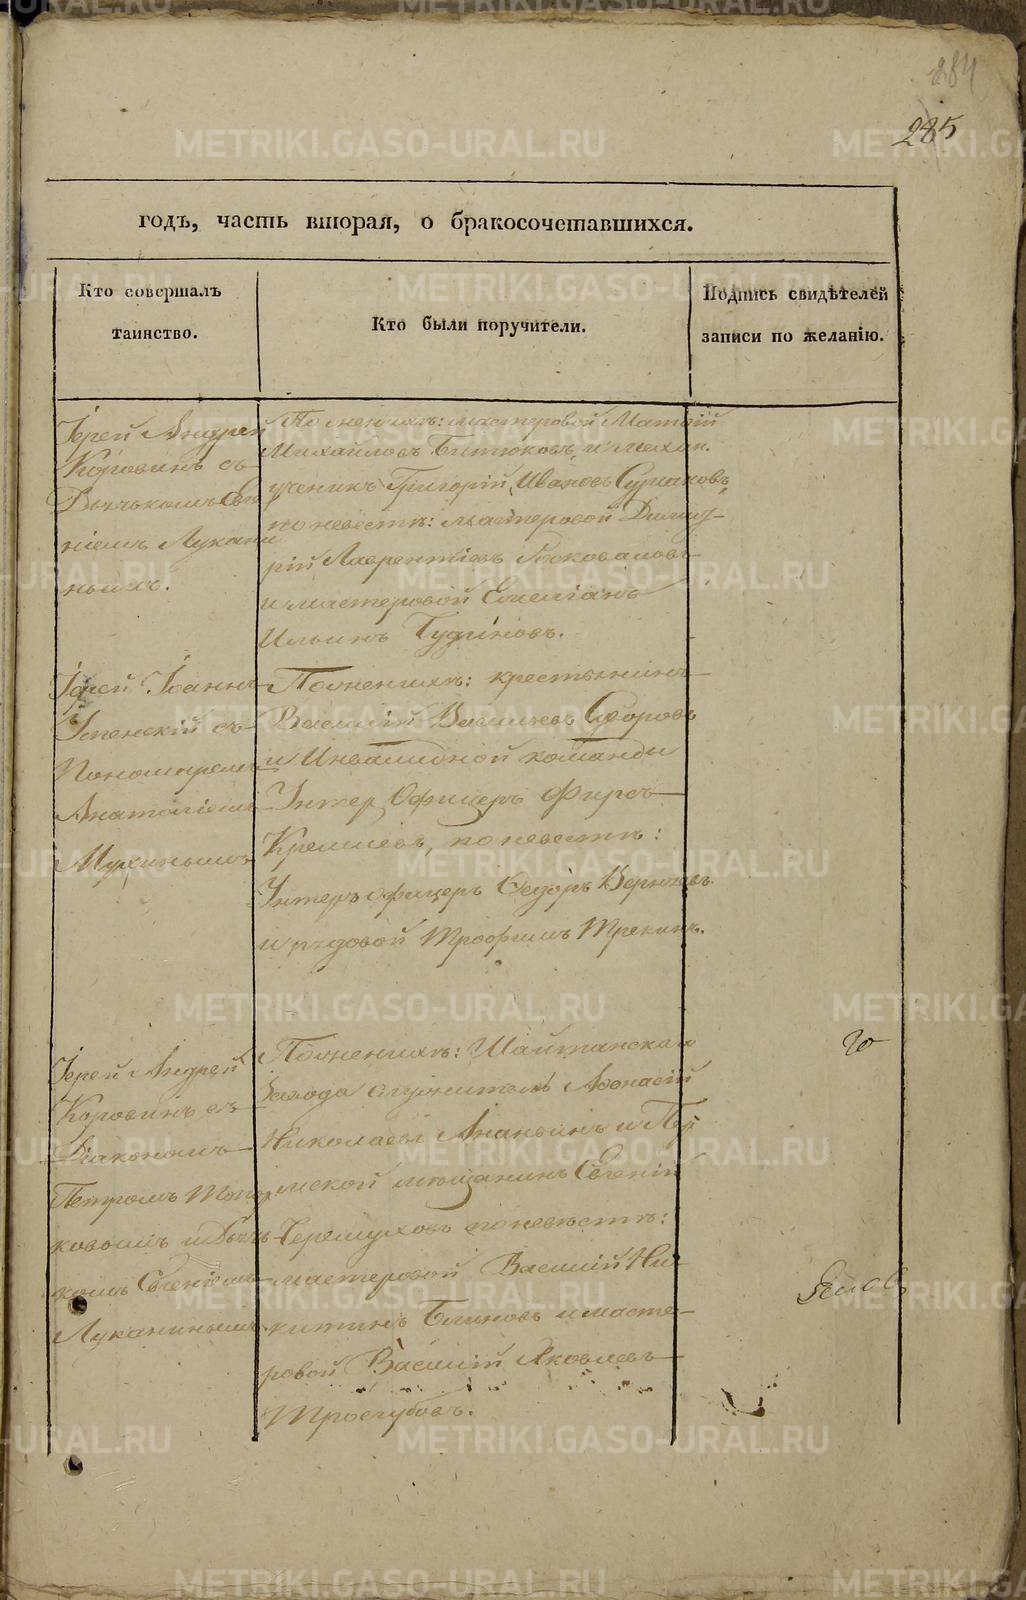 284
285
годъ, часть вторая, о бракосочетавшихся.
Кто совершалъ
таинство.
Кто были поручители.
Подпись свидѣтелей
записи по желанію.
Іерей Андрей
Коровинъ съ
Дьячькомъ Евге
ніемъ Лукани
нымъ.
По женихѣ: мастеровой Матвій
Михайловъ Битюковъ, и механ.
ученикъ Григорій Ивановъ
по невестѣ: мастеровой Димит-
рій Лаврентіевъ
и мастеровой Емеліанъ
Ильинъ
Іерей Іоаннъ
Успенскій съ
Пономаремъ
Анатоліемъ
Мухинымъ
По женихѣ: крестьянинъ
Василій Васильевъ
и Инвалидной команды
Унтер Офицеръ Фирсъ
по невестѣ:
Унтеръ офицеръ Федоръ
и рядовой Трофимъ
Іерей Андрей
Коровинъ съ
Діакономъ
Петромъ Топор
ковымъ и Дьяч
комъ Евгеніемъ
Луканинымъ.
По женихѣ: Шайтанскаго
завода служитель Афонасій
Николаевъ Ананьинъ и Пер
мской мѣщанинъ Евгеній
Черемуховъ по невѣстѣ:
мастеровой Василій Ни
китинъ Блиновъ и масте-
ровой Василій Яковлевъ
METRIKI.GASO-URAL.RU